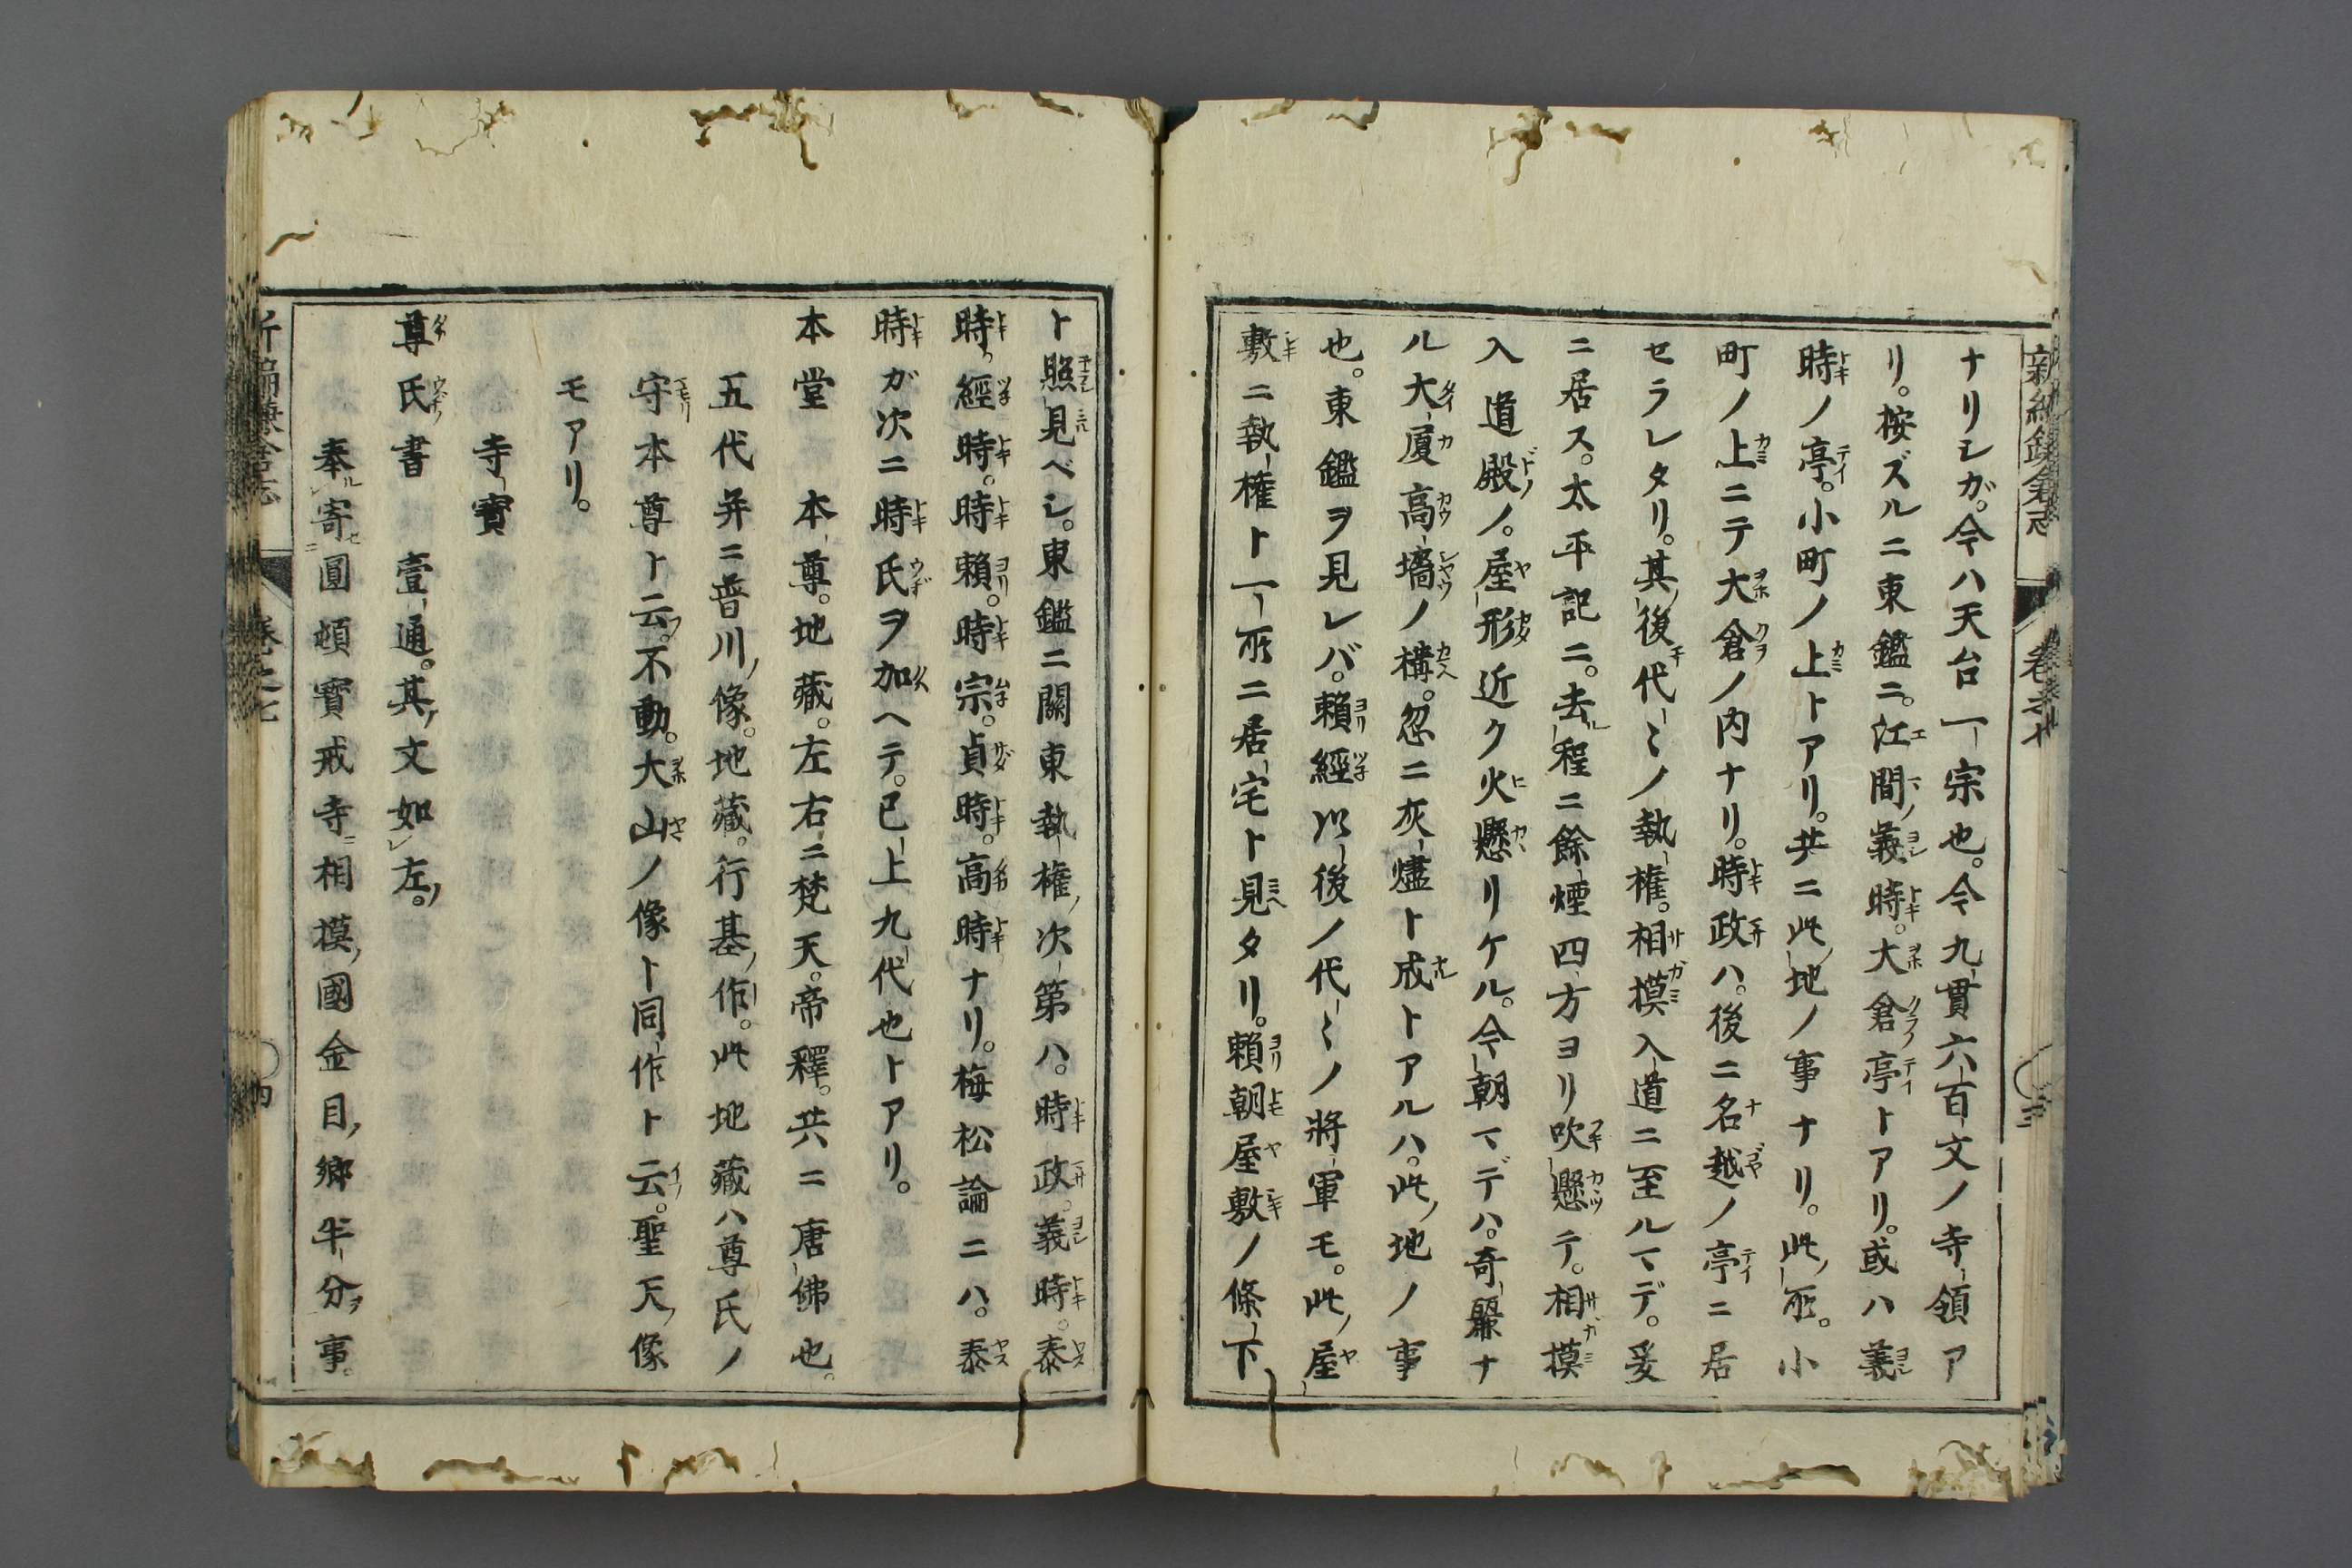 ナリシガ。今ハ天台一宗也。今九貫六百文ノ寺領ア
リ。按ズルニ東鑑ニ。江間義時。大倉亭トアリ。或ハ義
時ノ亭。小町ノ上トアリ。共ニ此地ノ事ナリ。此所。小
町ノ上ニテ大倉ノ内ナリ。時政ハ。後ニ名越ノ亭ニ居
セラレタリ。其後代々ノ執権。相摸入道ニ至ルマデ。爰
ニ居ス。太平記ニ。去程ニ餘煙四方ヨリ吹懸テ。相摸
入道殿ノ。屋形近ク火懸リケル。今朝マデハ。奇麗ナ
ル大廈高墻ノ構。忽ニ灰燼ト成トアルハ。此地ノ事
也。東鑑ヲ見レバ。賴經以後ノ代々ノ將軍モ。此屋
敷ニ執権ト一所ニ居宅ト見タリ。賴朝屋敷ノ條下
ト照見ベシ。東鑑ニ關東執権次第ハ。時政。義時。泰
時。經時。時賴。時宗。貞時。高時ナリ。梅松論ニハ。泰
時ガ次ニ時氏ヲ加ヘテ。已上九代也トアリ。
本堂 本尊。地藏。左右ニ梵天。帝釋。共ニ唐佛也。
五代并ニ普川像。地藏。行基作。此地藏ハ尊氏ノ
守本尊ト云。不動。大山ノ像ト同作ト云。聖天像
モアリ。
寺寶
尊氏書 壹通。其文如左。
奉寄圓頓寶戒寺相摸國金目郷半分事。
新編鎌倉志
卷之七
四
三